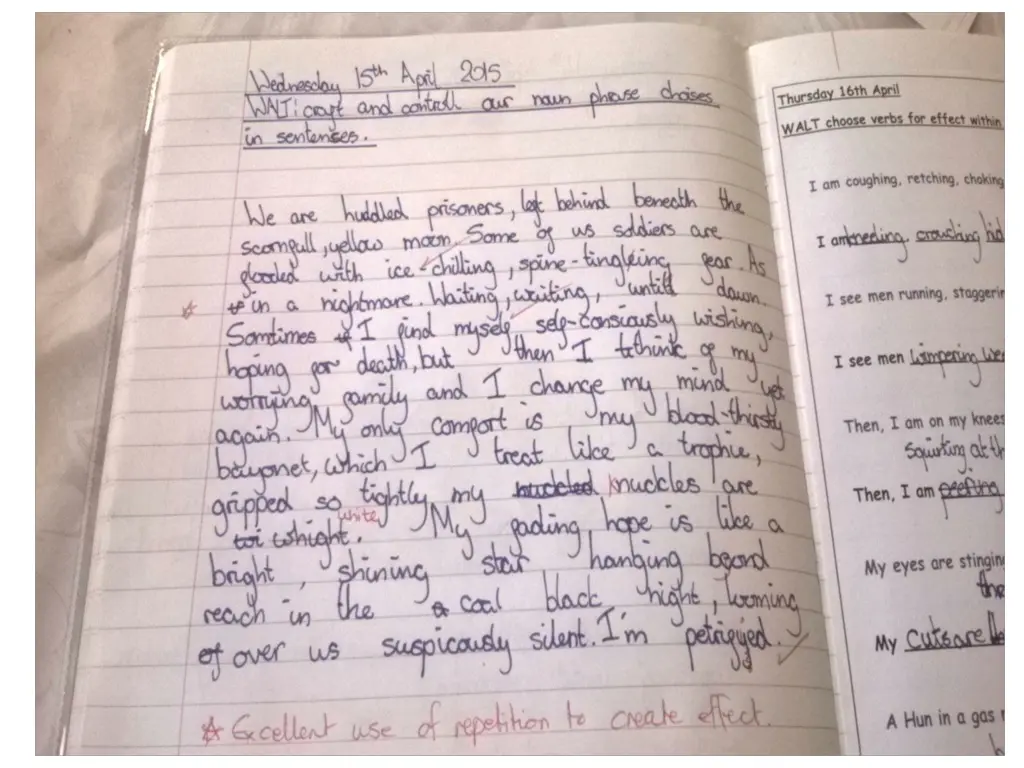 Wednesday 15th April 2015
WALT: craft and controll our noun phrase choises
in sentences.
We are huddled prisoners, left behind beneath the
scornfull, yellow moon. Some of us soldiers are
flooded with ice-chilling, spine-tingleing fear. As
in a nightmare. Waiting, waiting, untill dawn.
Somtimes I find myself self-consiously wishing,
hoping for death, but then I think of my
worrying family and I change my mind yet
again. My only comfort is my blood-thirsty
bayonet, which I treat like a trophie,
gripped so tightly my huckled knuckles are
white
whight. My fading hope is like a
bright, shining star hanging beond
reach in the coal black night, looming
of over us suspicously silent. I'm petrifyed.
☆ Excellent use of repetition to create effect.
Thursday 16th April
WALT choose verbs for effect within
I am coughing, retching, choking
I am kneeling, crouching hid
I see men running, staggerin
I see men wimpering
Then, I am on my knees
Squirting at th
Then, I am
My eyes are stinging
the
My cuts are
A Hun in a gas